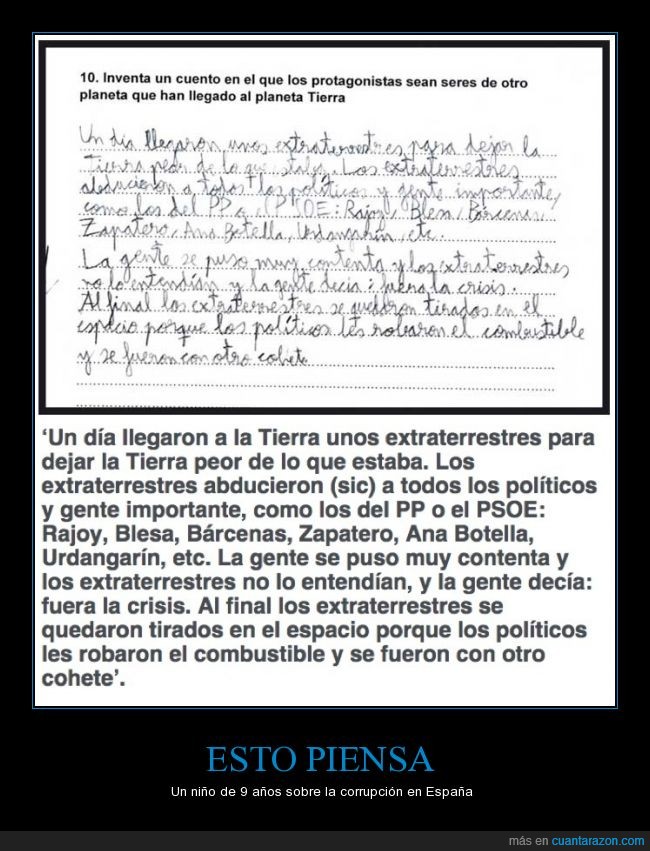 10. Inventa un cuento en el que los protagonistas sean seres de otro
planeta que han llegado al planeta Tierra
Un día llegaron unos extraterrestres para dejar la
Tierra peor de lo que estaba. Los extraterrestres
abducieron a todos los políticos y gente importante,
como los del PP o el PSOE: Rajoy, Blesa, Bárcenas,
Zapatero, Ana Botella, Urdangarín, etc.
La gente se puso muy contenta y los extraterrestres
no lo entendían y la gente decía: fuera la crisis.
Al final los extraterrestres se quedaron tirados en el
espacio porque los políticos les robaron el combustible
y se fueron con otro cohete
‘Un día llegaron a la Tierra unos extraterrestres para
dejar la Tierra peor de lo que estaba. Los
extraterrestres abducieron (sic) a todos los políticos
y gente importante, como los del PP o el PSOE:
Rajoy, Blesa, Bárcenas, Zapatero, Ana Botella,
Urdangarín, etc. La gente se puso muy contenta y
los extraterrestres no lo entendían, y la gente decía:
fuera la crisis. Al final los extraterrestres se
quedaron tirados en el espacio porque los políticos
les robaron el combustible y se fueron con otro
cohete’.
ESTO PIENSA
Un niño de 9 años sobre la corrupción en España
más en cuantarazon.com